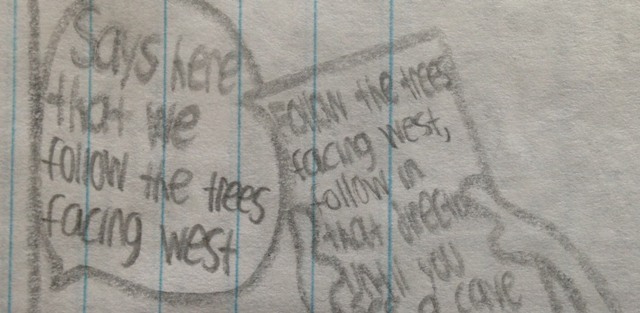 Says here
that we
follow the trees
facing west
Follow the trees
facing west,
follow in
that direction
until you
cave